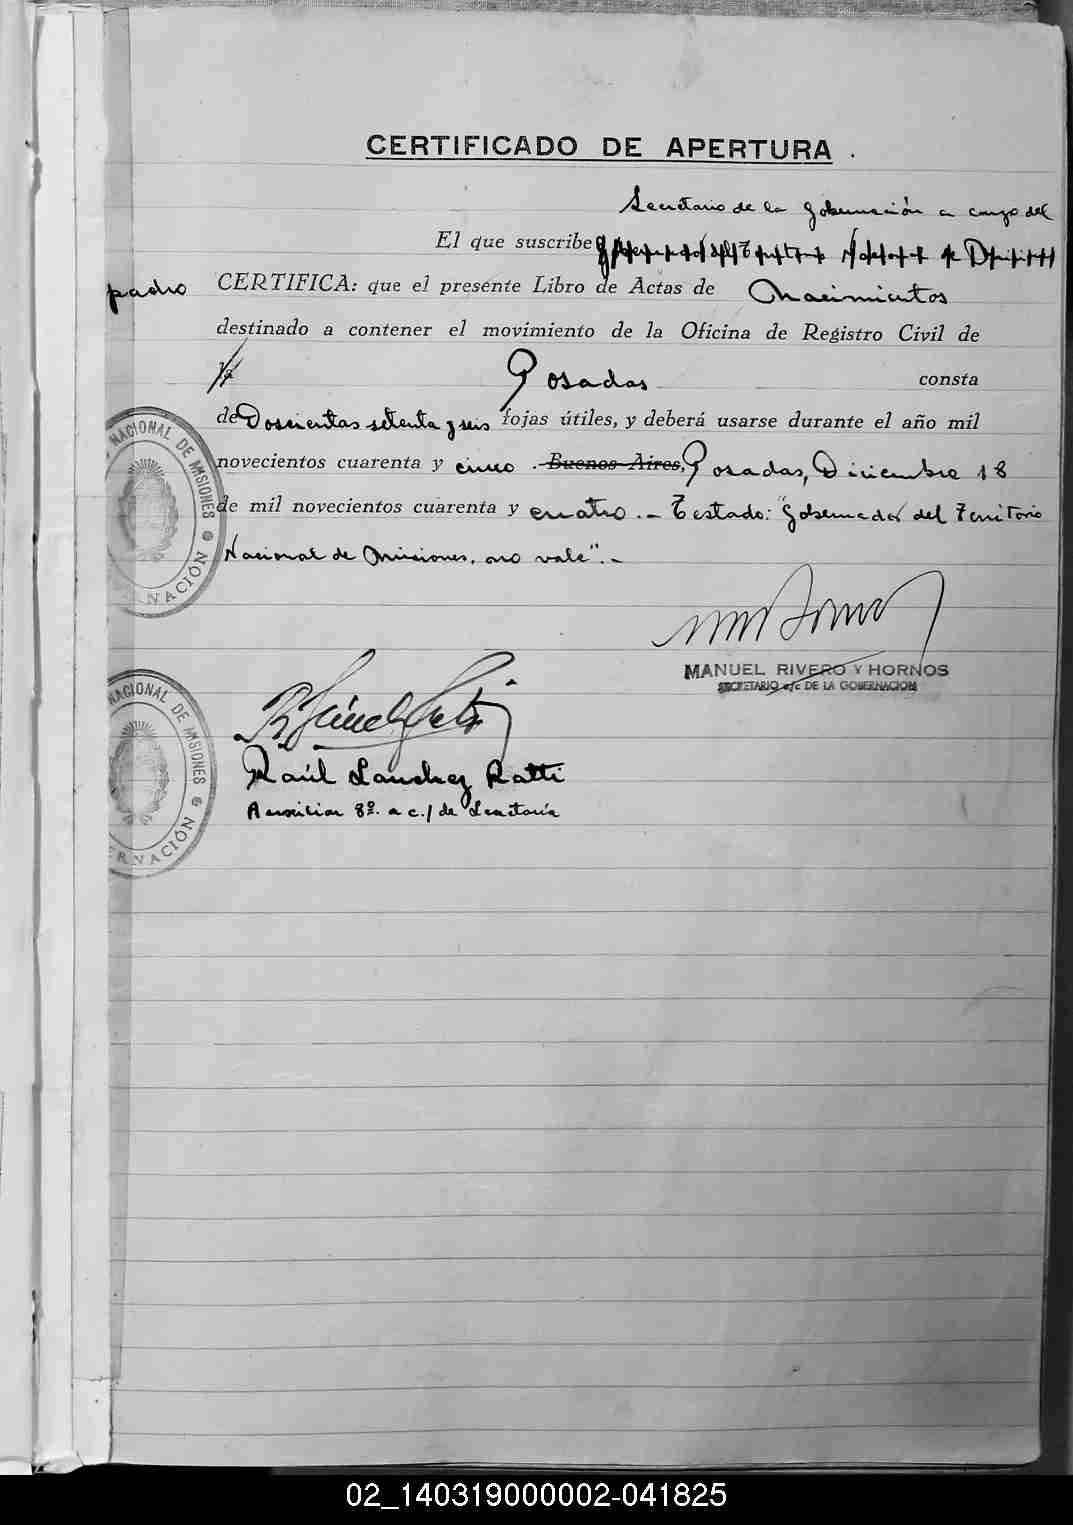 CERTIFICADO DE APERTURA .
Secretario de la Gobernación a cargo del
El que suscribe Gobernador del Territorio Nacional de Misiones
padro CERTIFICA: que el presente Libro de Actas de Nacimientos
destinado a contener el movimiento de la Oficina de Registro Civil de
Posadas consta
de Doscientas setenta y seis fojas útiles, y deberá usarse durante el año mil
novecientos cuarenta y cinco . Buenos Aires, Posadas, Diciembre 18
de mil novecientos cuarenta y cuatro. - Testado: "Gobernador del Territorio
Nacional de Misiones, no vale". -
NACIONAL DE MISIONES
GOBERNACIÓN
MANUEL RIVERO Y HORNOS
SECRETARIO a/c DE LA GOBERNACION
NACIONAL DE MISIONES
ERNACIÓN
Raúl Sanchez Ratti
Auxiliar 8º. a c./ de Secretaría
02_140319000002-041825